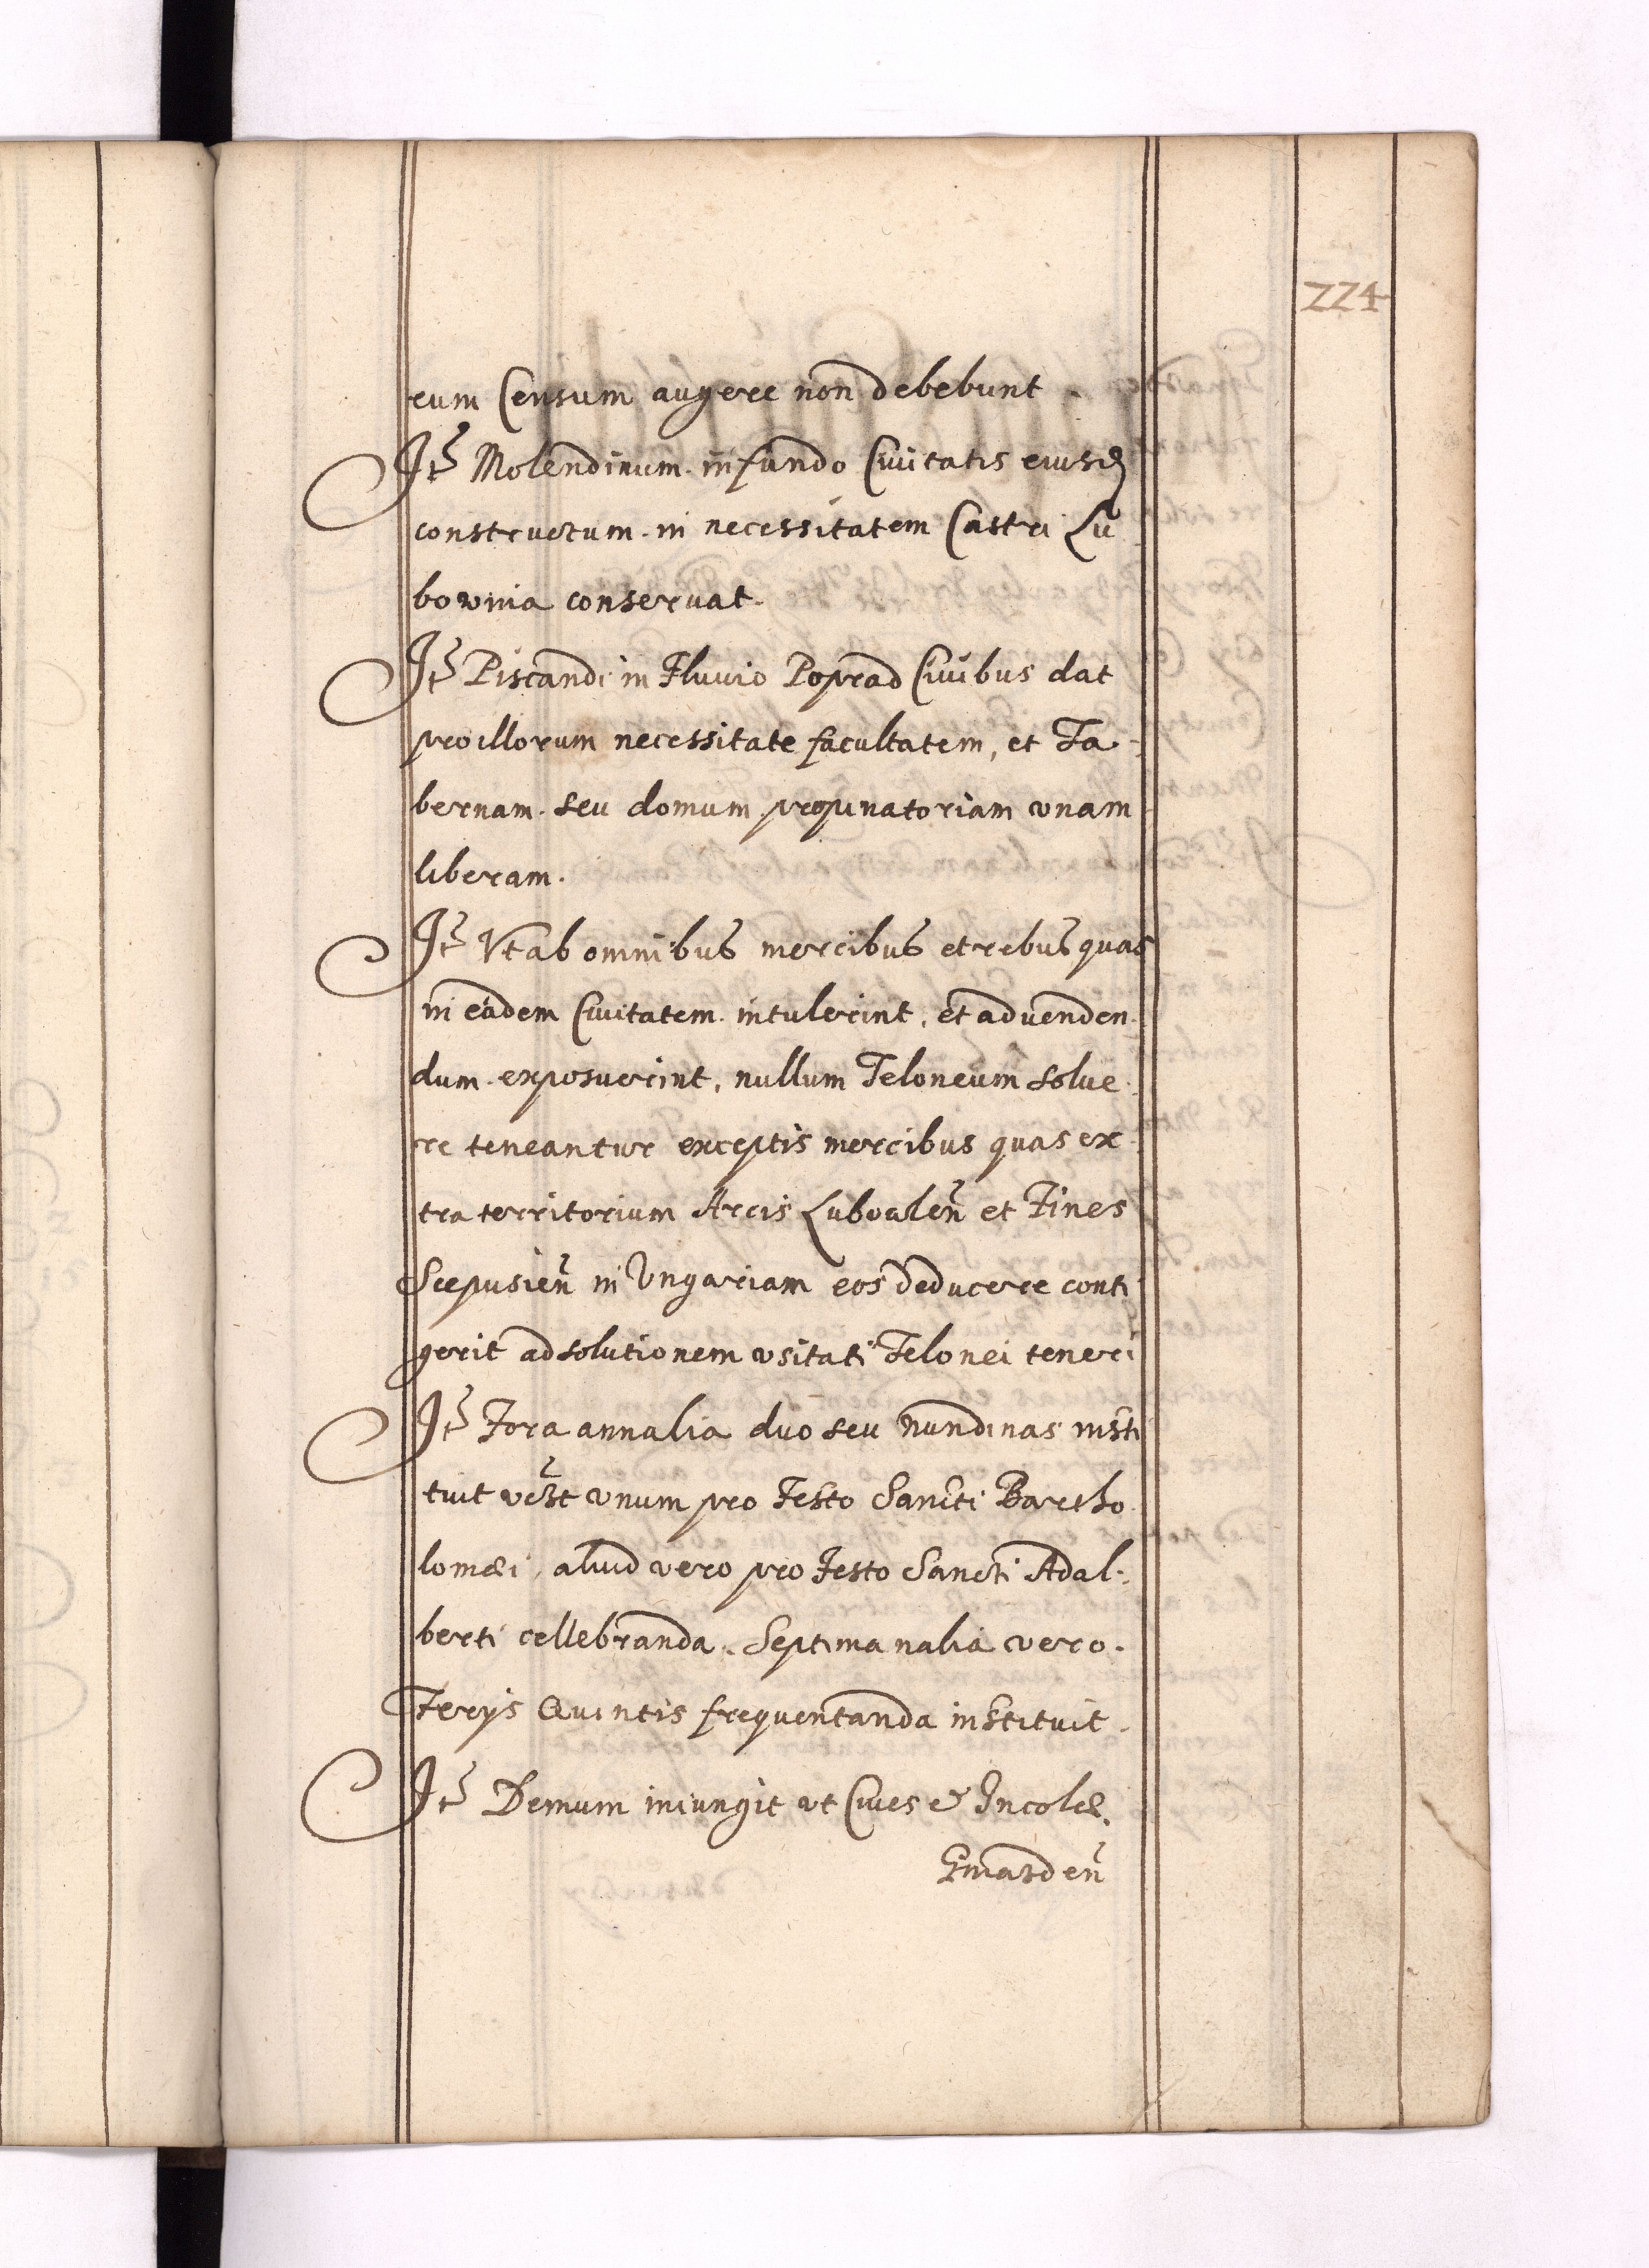 224
eum Censum augere non debebunt.
Itē Molendinum in fundo Ciuitatis eiusd
constructum in necessitatem Castri Lu
bownia conseruat.
Itē Piscandi in Fluuio Poprad Ciuibus dat
pro illorum necessitate facultatem, et Ta-
bernam seu domum propinatoriam vnam
liberam.
Itē Vt ab omnibus mercibus et rebus quas
in eadem Ciuitatem intulerint, et ad venden-
dum exposuerint, nullum Teloneum solue-
re teneantur exceptis mercibus quas ex-
tra territorium Arcis Luboalen̄ et Fines
Scepusien̄ in Vngariam eos deducere conti
gerit ad solutionem vsitati Telonei teneri
Itē Fora annalia duo seu nundinas insti
tuit vnum pro Festo Sancti Bartho
lomæi, aliud vero pro Festo Sancti Adal-
berti cellebranda. Septimanalia vero.
Ferijs Quintis frequentanda instituit.
Itē Demum iniungit vt Ciues et Incolæ.
Gniazden̄